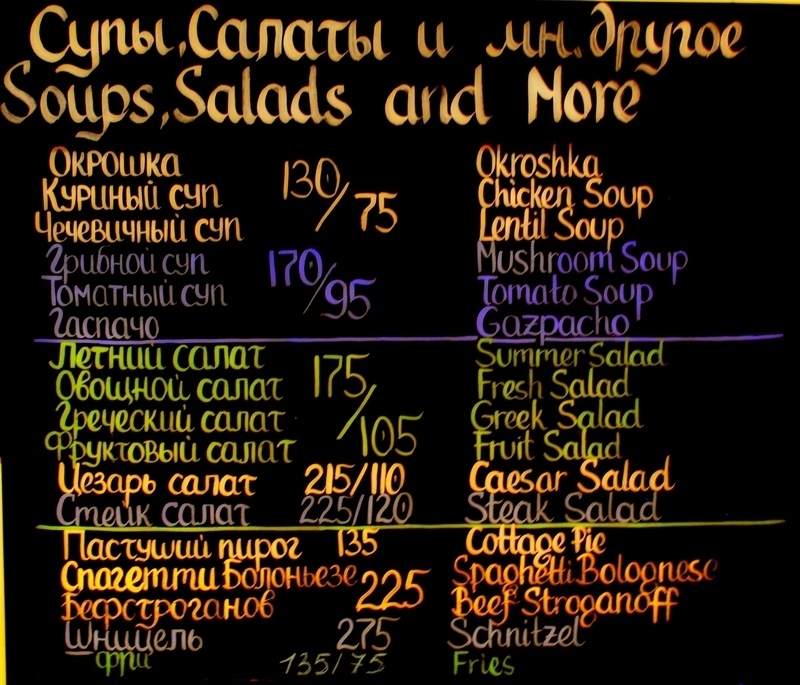 Супы, Салаты и мн. другое
Soups, Salads and More
Окрошка 130/75 Okroshka
Куриный суп Chicken Soup
Чечевичный суп Lentil Soup
Грибной суп 170/95 Mushroom Soup
Томатный суп Tomato Soup
Гаспачо Gazpacho
Летний салат 175/105 Summer Salad
Овощной салат Fresh Salad
Греческий салат Greek Salad
Фруктовый салат Fruit Salad
Цезарь салат 215/110 Caesar Salad
Стейк салат 225/120 Steak Salad
Пастуший пирог 135 Cottage Pie
Спагетти Болоньезе 225 Spaghetti Bolognese
Бефстроганов Beef Stroganoff
Шницель 275 Schnitzel
фри 135/75 Fries